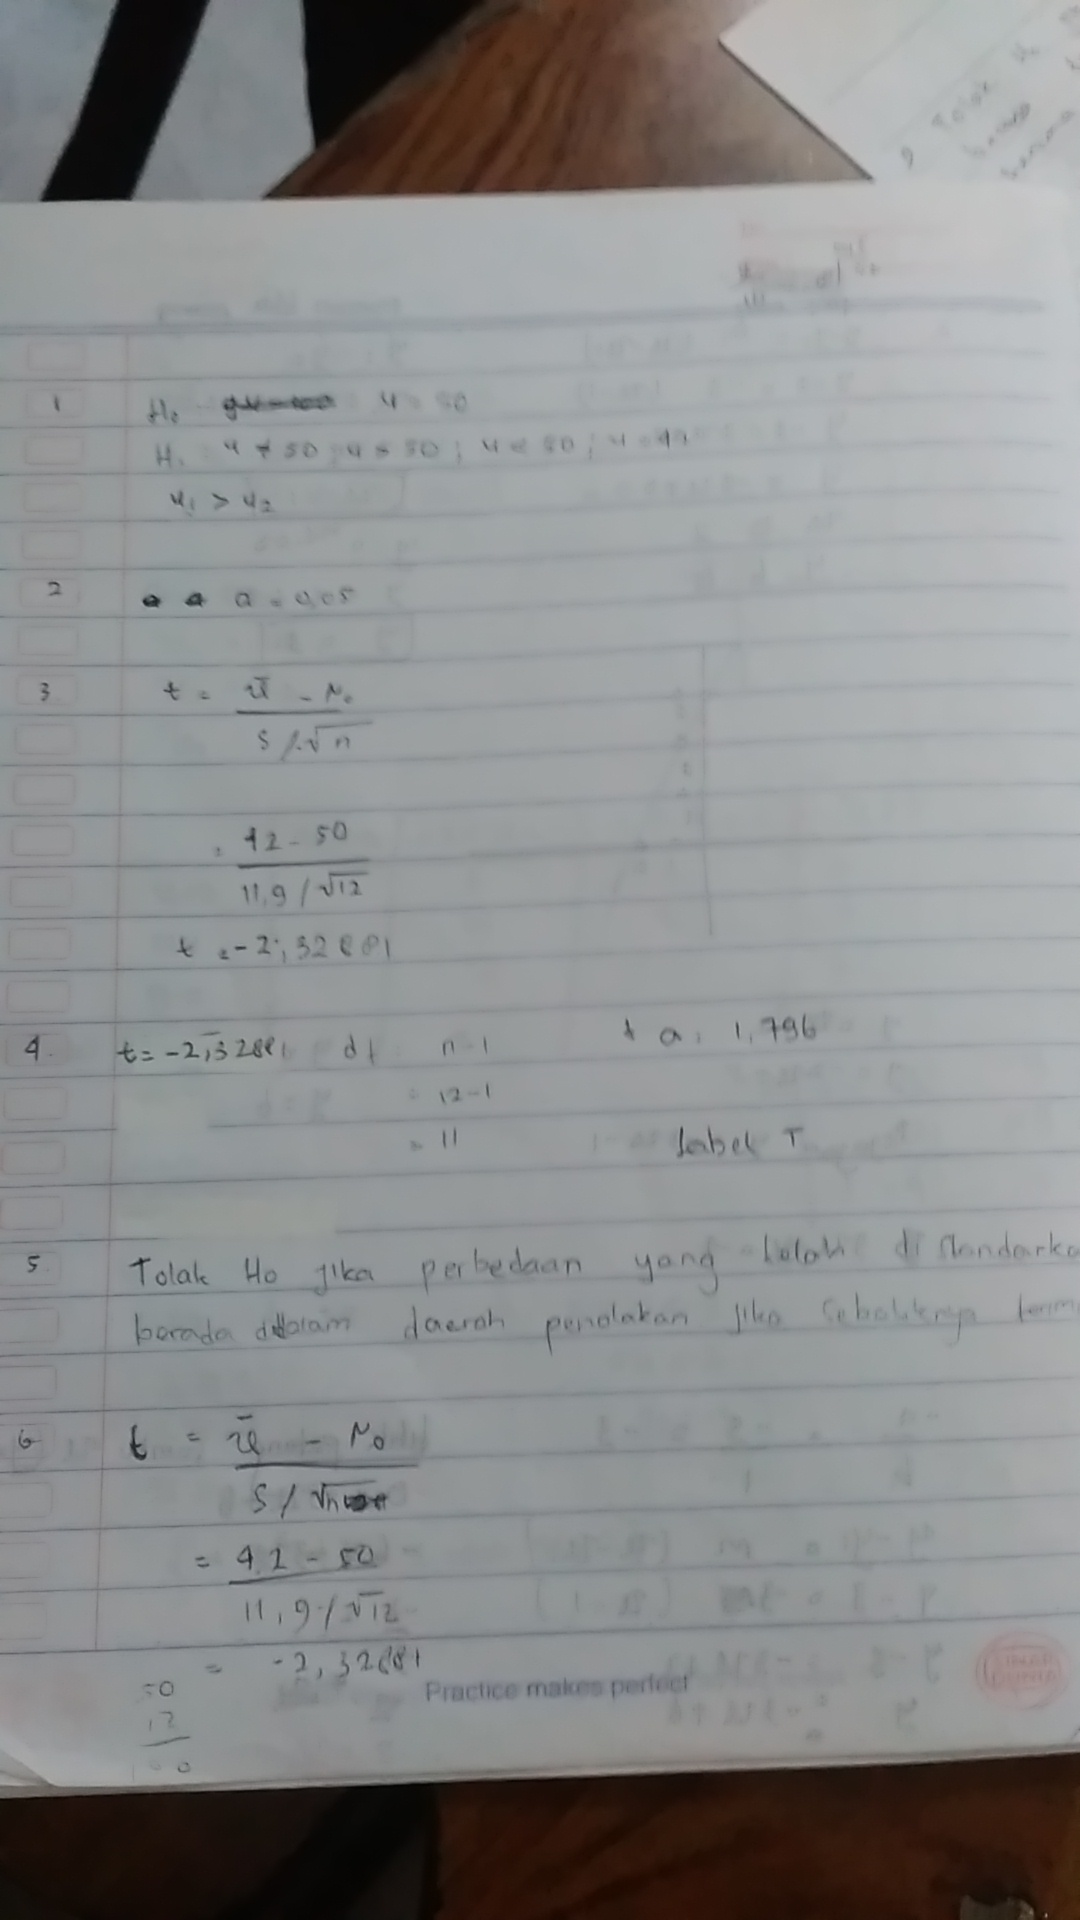 Tolak
1 H₀ μ = 50
H₁ μ ≠ 50 ; μ = 50 ; μ < 50 ; μ = 49
μ₁ > μ₂
2 a = 0,05
3. t = x̄ - μ₀
s / √n
= 42 - 50
11,9 / √12
t = -2,32881
4. t = -2,32881 df n-1 t a, 1,796
= 12-1
= 11 tabel T
5. Tolak Ho jika perbedaan yang di standarka
berada didalam daerah penolakan jika
6 t = x̄ - μ₀
S / √n
= 42 - 50
11,9 / √12
= -2,32881
Practice makes perfect
50
12